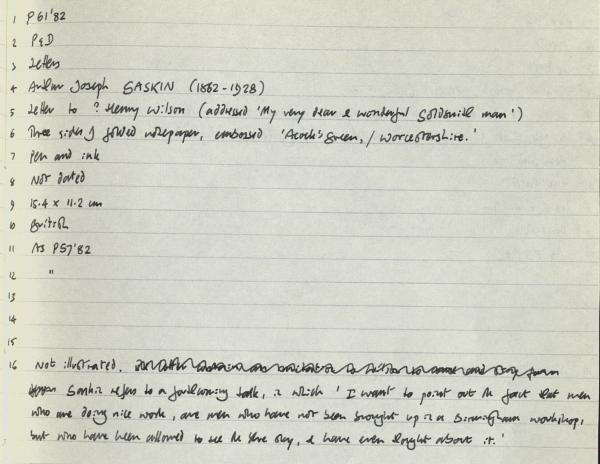 1 P61'82
2 P&D
3 Letters
4 Arthur Joseph GASKIN (1862-1928)
5 Letter to ? Henry Wilson (addressed 'My very dear & wonderful Goldsmith man')
6 Three sides of folded notepaper, embossed 'Acock's Green, / Worcestershire.'
7 Pen and ink
8 Not dated
9 15.4 x 11.2 cm
10 British
11 As P57'82
12 "
13
14
15
16 Not illustrated.
Gaskin refers to a forthcoming talk, in which 'I want to point out the fact that men
who are doing nice work, are men who have not been brought up in a Birmingham workshop,
but who have been allowed to see the sky, & have even thought about it.'